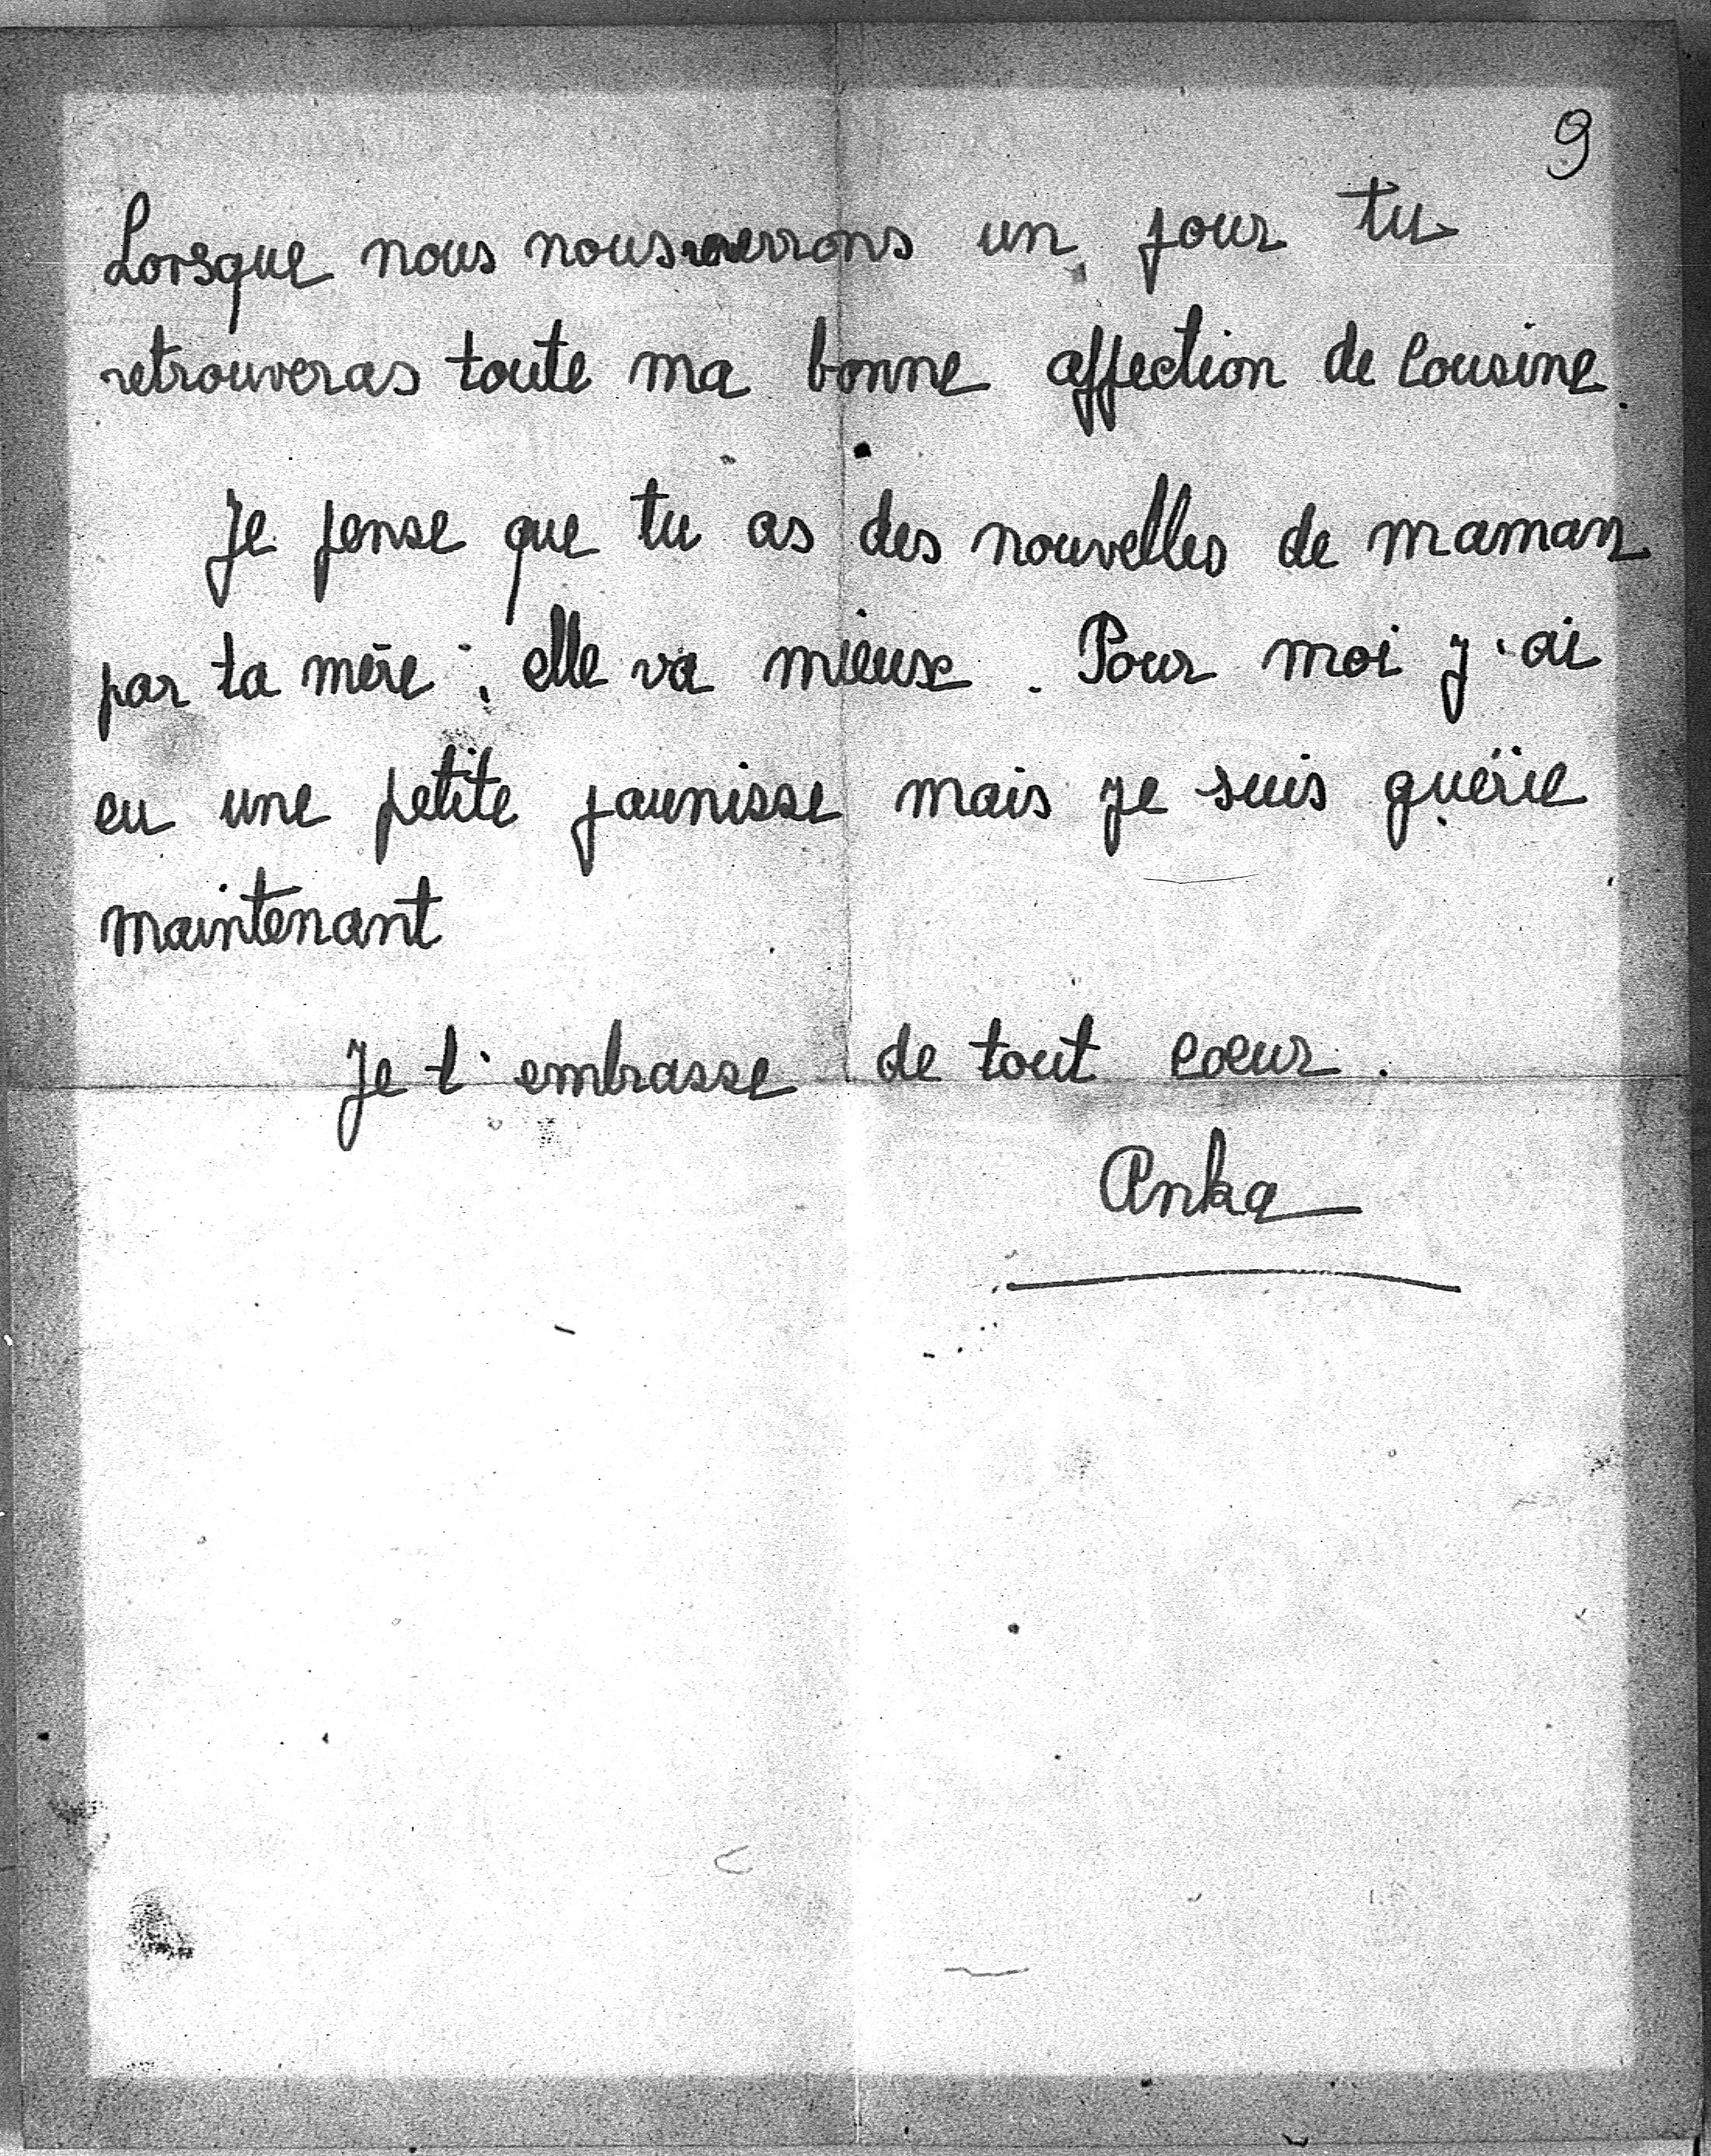 9
Lorsque nous nous reverrons un jour tu
retrouveras toute ma bonne affection de cousine.
Je pense que tu as des nouvelles de maman
par ta mère ; elle va mieux. Pour moi j'ai
eu une petite jaunisse mais je suis guérie
maintenant
Je t'embrasse de tout coeur.
Anka